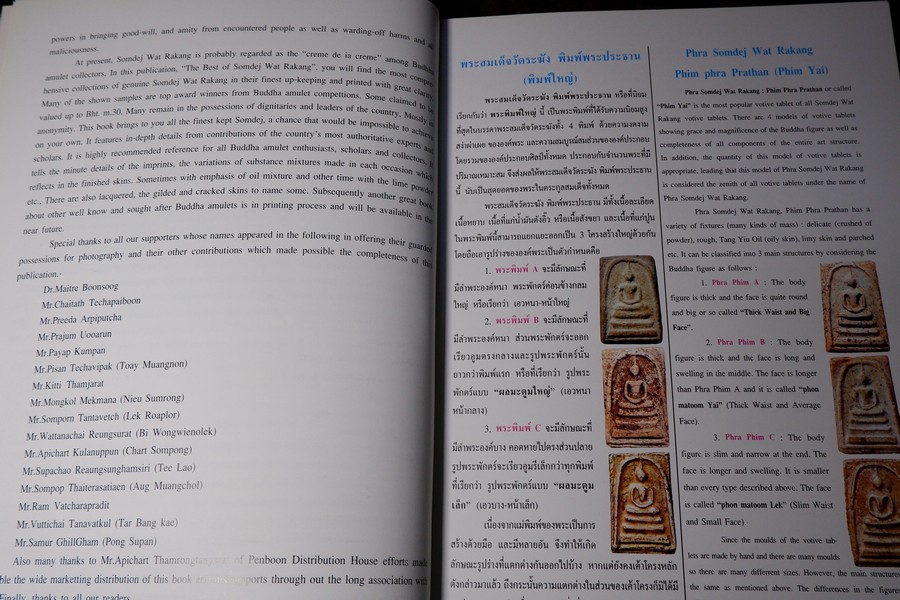 powers in bringing good-will, and amity from encountered people as well as warding-off harms and
maliciousness.
At present, Somdej Wat Rakang is probably regarded as the "creme de ia creme" among Buddha
amulet collectors, In this publication, "The Best of Somdej Wat Rakang", you will find the most
hensive collections of genuine Somdej Wat Rakang in their finest up-keeping and printed with great clarity.
Many of the shown samples are top award winners from Buddha amulet compettions. Some claimed to be
valued up to Bht. m.30. Many remain in the possessions of dignitaries and leaders of the country, Mostly in
anonymity. This book brings to you all the finest kept Somdej, a chance that would be impossible to achieve
on your own. It features in-depth details from contributions of the country's most authoritative experts and
scholars. It is highly recommended reference for all Buddha amulet enthusiasts, scholars and collectors, It
tells the minute details of the imprints, the variations of substance mixtures made in each occasion which
reflects in the finished skins. Sometimes with emphasis of oil mixture and other time with the lime powder
etc., There are also lacquered, the gilded and cracked skins to name some. Subsequently another great book
about other well know and sought after Buddha amulets is in printing process and will be available in the
near future.
Special thanks to all our supporters whose names appeared in the following in offering their guarded
possessions for photography and their other contributions which made possible the completeness of this
publication.-
Dr.Maitre Boonsoog
Mr.Chaitath Techapaiboon
Mr.Preeda Arpiputcha
Mr.Prajum Uooarun
Mr.Payap Kumpan
Mr.Pisan Techavipak (Toay Muangnon)
Mr.Kitti Thamjarat
Mr.Mongkol Mekmana (Nieu Sumrong)
Mr.Somporn Tantavetch (Lek Roaplor)
Mr.Wattanachai Reungsurat (Bi Wongwienolek)
Mr.Apichart Kulanuppun (Chart Sompong)
Mr.Supachao Reaungsunghamsiri (Tee Lao)
Mr.Sompop Thaiterasatiaen (Aug Muangchol)
Mr.Ram Vatcharapradit
Mr.Vuttichai Tanavatkul (Tar Bang kae)
Mr.Samur GhillGham (Pong Supan)
Also many thanks to Mr.Apichart of Penboon Distribution House efforts made
ble the wide marketting distribution of this book through out the long association with
Finally, thanks to all our readers
พระสมเด็จวัดระฆัง พิมพ์พระประธาน
(พิมพ์ใหญ่)
พระสมเด็จวัดระฆัง พิมพ์พระประธาน หรือที่นิยม
เรียกกันว่า พระพิมพ์ใหญ่ นี้ เป็นพระพิมพ์ที่ได้รับความนิยมสูง
ที่สุดในบรรดาพระสมเด็จวัดระฆังทั้ง 4 พิมพ์ ด้วยความงดงาม
สง่าผ่าเผย ขององค์พระ และความสมบูรณ์สมส่วนขององค์ประกอบ
โดยรวมขององค์ประกอบศิลป์ทั้งหมด ประกอบกับจำนวนพระที่มี
ปริมาณเหมาะสม จึงส่งผลให้พระสมเด็จวัดระฆัง พิมพ์พระประธาน
นี้ นับเป็นสุดยอดของพระในตระกูลสมเด็จทั้งหมด
พระสมเด็จวัดระฆัง พิมพ์พระประธาน มีทั้งเนื้อละเอียด
เนื้อหยาบ เนื้อที่แก่น้ำมันตังอิ้ว หรือเนื้อสังขยา และเนื้อที่แก่ปูน
ในพระพิมพ์นี้สามารถแยกแยะออกเป็น 3 โครงสร้างใหญ่ด้วยกัน
โดยถือเอารูปร่างขององค์พระเป็นตัวกำหนดคือ
1. พระพิมพ์ A จะมีลักษณะที่
มีลำพระองค์หนา พระพักตร์ค่อนข้างกลม
ใหญ่ หรือเรียกว่า เอวหนา-หน้าใหญ่
2. พระพิมพ์ B จะมีลักษณะที่
มีลำพระองค์หนา ส่วนพระพักตร์จะออก
เรียวอูมตรงกลางและรูปพระพักตร์นั้น
ยาวกว่าพิมพ์แรก หรือที่เรียกว่า รูปพระ
พักตร์แบบ "ผลมะตูมใหญ่" (เอวหนา
หน้ากลาง)
3. พระพิมพ์ C จะมีลักษณะที่
มีลำพระองค์บาง คอดหายไปตรงส่วนปลาย
รูปพระพักตร์จะเรียวอูมรีเล็กกว่าทุกพิมพ์
ที่เรียกว่า รูปพระพักตร์แบบ "ผลมะตูม
เล็ก" (เอวบาง-หน้าเล็ก)
เนื่องจากแม่พิมพ์ของพระเป็นการ
สร้างด้วยมือ และมีหลายอัน จึงทำให้เกิด
ลักษณะรูปร่างที่แตกต่างกันออกไปบ้าง หากแต่ยังคงเค้าโครงหลัก
ดังกล่าวมาแล้ว ถึงกระนั้นความแตกต่างในส่วนของเค้าโครงก็มิได้มี
Phra Somdej Wat Rakang
Phim phra Prathan (Phim Yai)
Phra Somdej Wat Rakang : Phim Phra Prathan or called
"Phim Yai" is the most popular votive tablet of all Somdej Wat
Rakang votive tablets. There are 4 models of votive tablets
showing grace and magnificence of the Buddha figure as well as
completeness of all components of the entire art structure.
In addition, the quantity of this model of votive tablets is
appropriate, leading that this model of Phra Somdej Wat Rakang
is considered the zenith of all votive tablets under the name of
Phra Somdej Wat Rakang.
Phra Somdej Wat Rakang, Phim Phra Prathan has a
variety of fixtures (many kinds of mass) : delicate (crushed of
powder), rough, Tang Yiu Oil (oily skin), limy skin and parched
etc. It can be classified into 3 main structures by considering the
Buddha figure as follows :
1. Phra Phim A : The body
figure is thick and the face is quite round
and big or so called "Thick Waist and Big
Face".
2. Phra Phim B : The body
figure is thick and the face is long and
swelling in the middle. The face is longer
than Phra Phim A and it is called "phon
matoom Yai" (Thick Waist and Average
Face).
3. Phra Phim C : The body
figure is slim and narrow at the end. The
face is longer and swelling. It is smaller
than every type described above. The face
is called "phon matoom Lek" (Slim Waist
and Small Face).
Since the moulds of the votive tab-
lets are made by hand and there are many moulds
so there are many different sizes. However, the main structures
the same as mentioned above. The differences in the figures